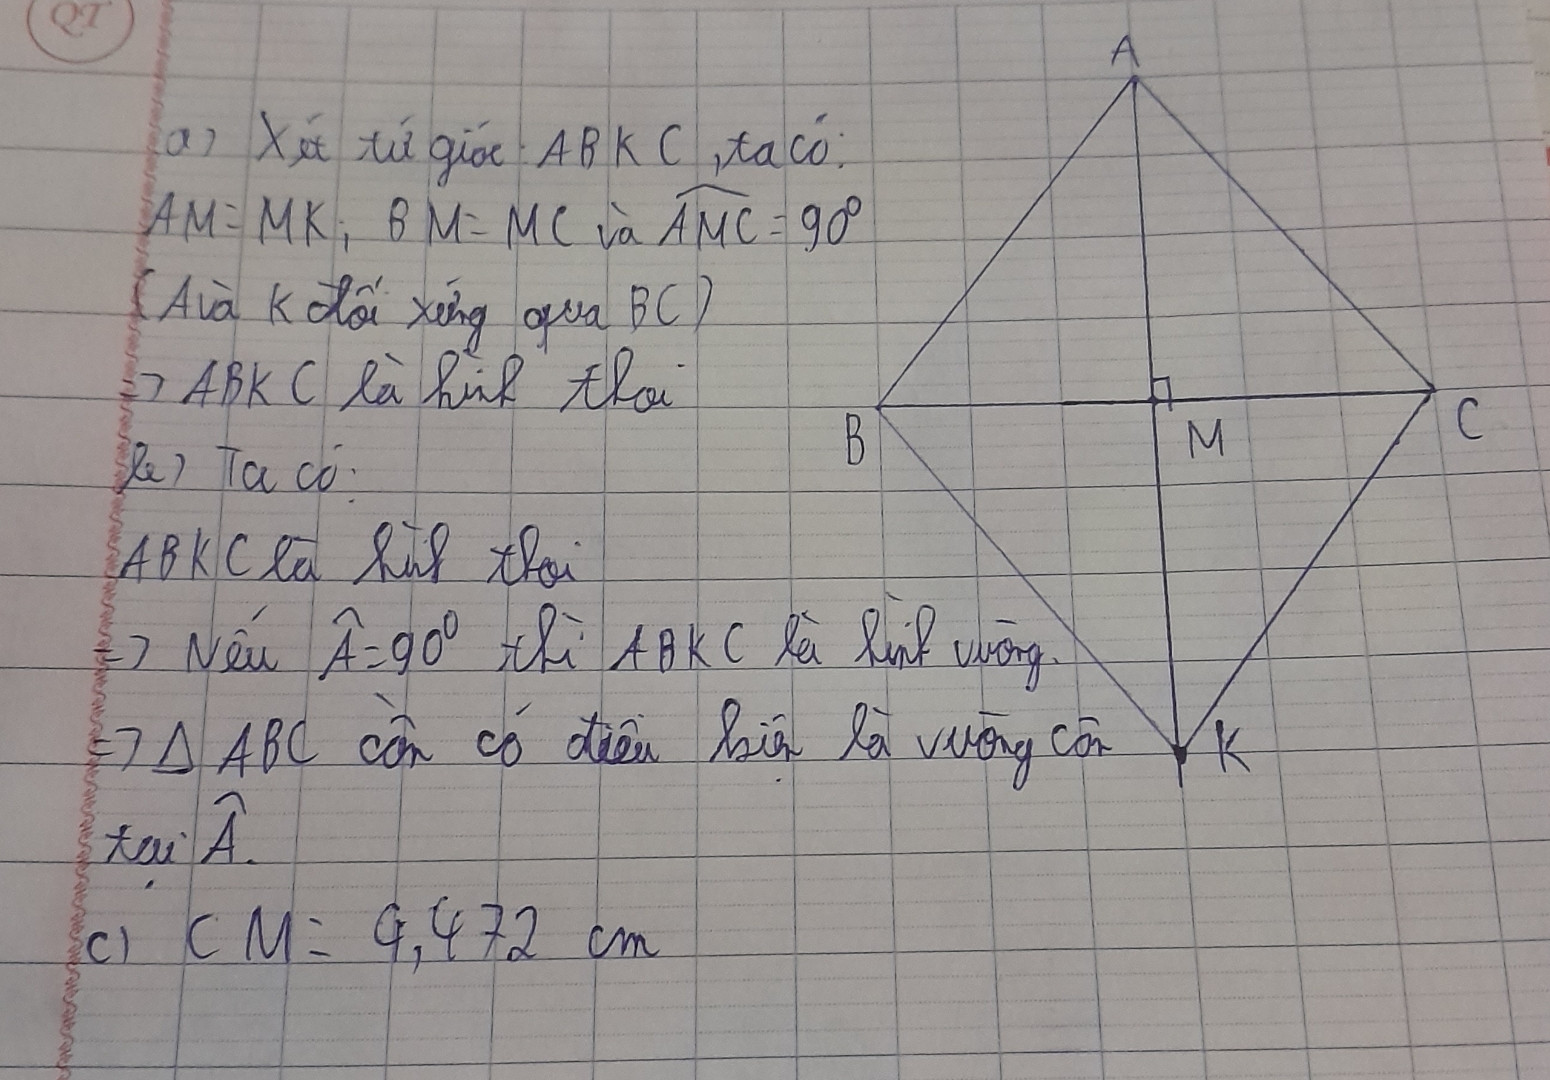 QT
a) Xét tứ giác ABKC, ta có:
AM = MK; BM = MC và AMC = 90°
(A và K đối xứng qua BC)
=> ABKC là hình thoi
b) Ta có:
ABKC là hình thoi
=> Nếu Â = 90° thì ABKC là hình vuông.
=> Δ ABC cần có điều kiện là vuông cân
tại Â.
c) CM = 4,472 cm
A
B
M
C
K